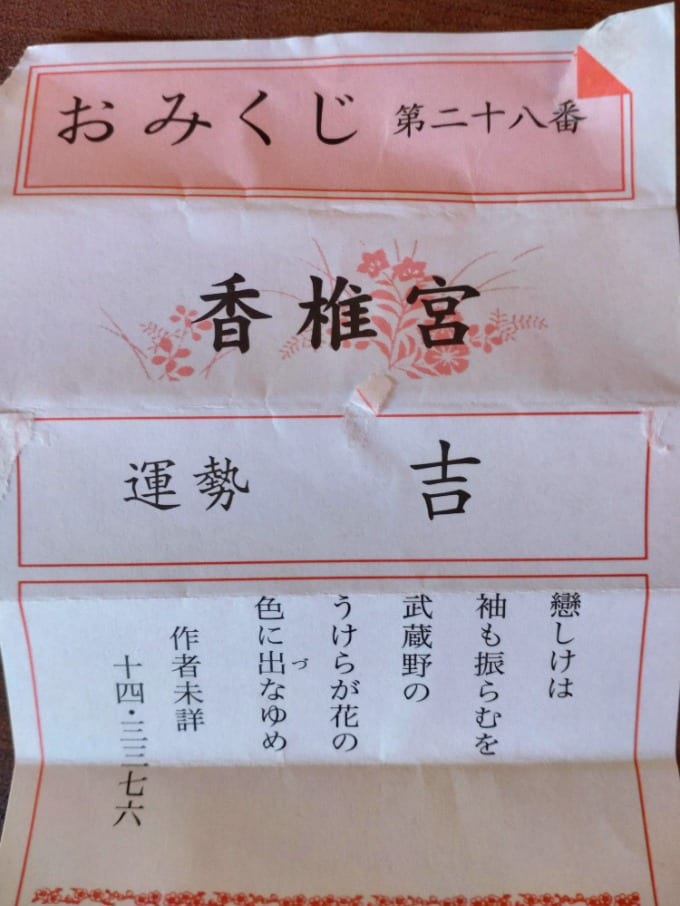 おみくじ 第二十八番
香椎宮
運勢 吉
戀しけは
袖も振らむを
武蔵野の
うけらが花の
色に出なゆめ
づ
作者未詳
十四・三三七六